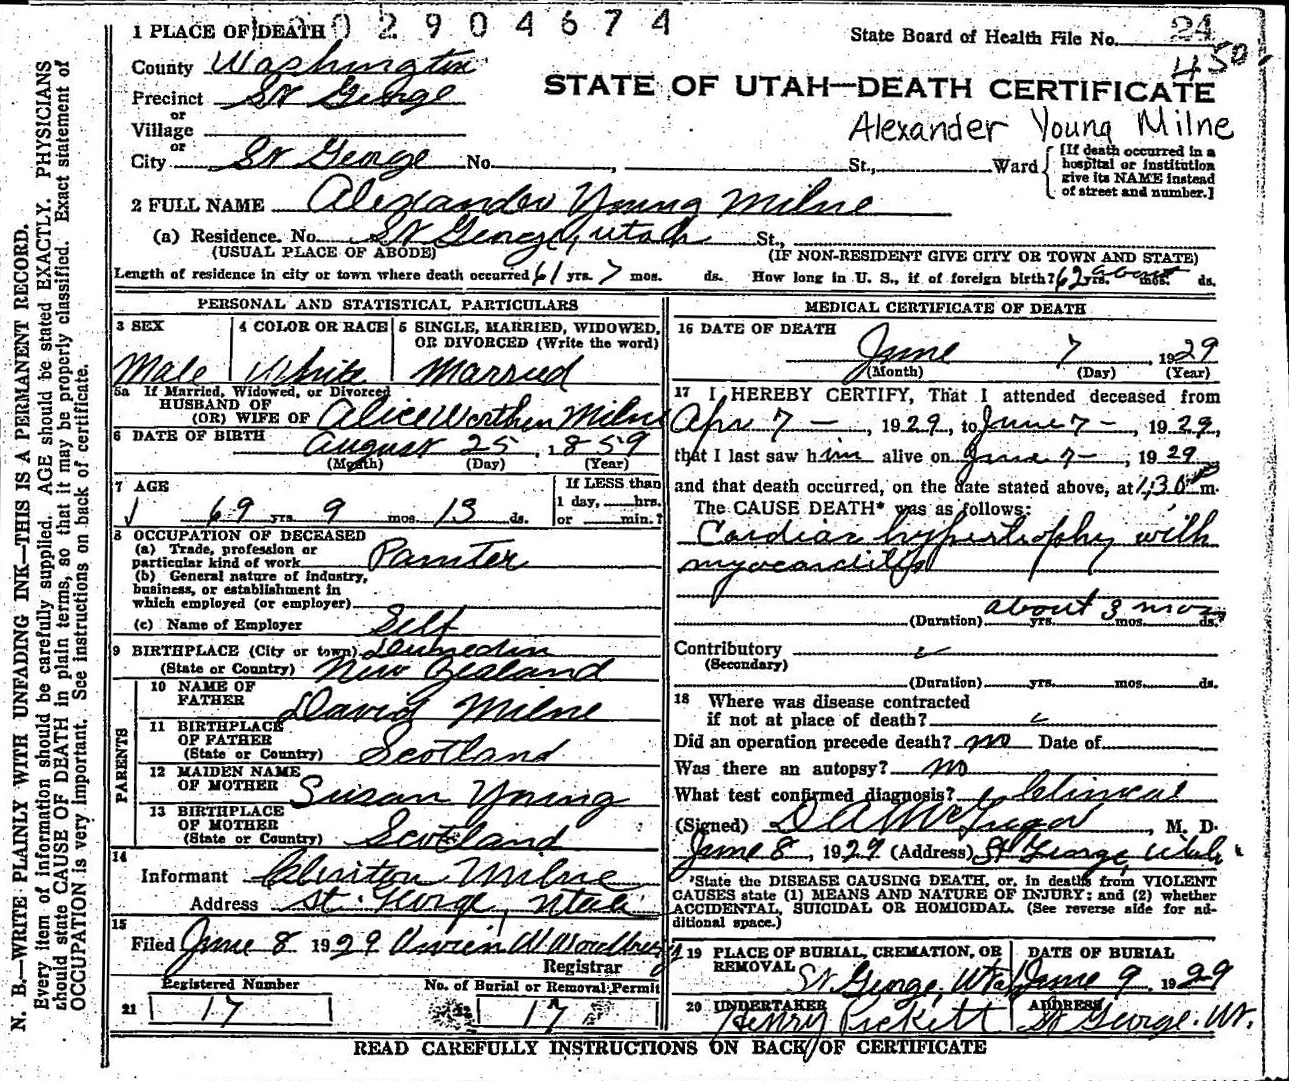 1 PLACE OF DEATH 0 0 2 9 0 4 6 7 4
State Board of Health File No. 24
450
County Washington
STATE OF UTAH—DEATH CERTIFICATE
Precinct St George
or
Village
Alexander Young Milne
or
City St George No. , St., Ward
[If death occurred in a
hospital or institution
give its NAME instead
of street and number.]
2 FULL NAME Alexander Young Milne
(a) Residence. No. St George, Utah St.,
(USUAL PLACE OF ABODE) (IF NON-RESIDENT GIVE CITY OR TOWN AND STATE)
Length of residence in city or town where death occurred 61 yrs. 7 mos. ds. How long in U. S., if of foreign birth? 62 yrs. about mos. ds.
PERSONAL AND STATISTICAL PARTICULARS
3 SEX
Male
4 COLOR OR RACE
White
5 SINGLE, MARRIED, WIDOWED,
OR DIVORCED (Write the word)
Married
5a If Married, Widowed, or Divorced
HUSBAND OF
(OR) WIFE OF Alice Worthen Milne
6 DATE OF BIRTH August 25, 1859
(Month) (Day) (Year)
7 AGE
69 yrs. 9 mos. 13 ds.
If LESS than
1 day, hrs.
or min.?
8 OCCUPATION OF DECEASED
(a) Trade, profession or
particular kind of work Painter
(b) General nature of industry,
business, or establishment in
which employed (or employer)
(c) Name of Employer Self
9 BIRTHPLACE (City or town) Dunedin
(State or Country) New Zealand
PARENTS
10 NAME OF
FATHER David Milne
11 BIRTHPLACE
OF FATHER
(State or Country) Scotland
12 MAIDEN NAME
OF MOTHER Susan Young
13 BIRTHPLACE
OF MOTHER
(State or Country) Scotland
14
Informant Clinton Milne
Address St. George, Utah
15
Filed June 8 1929 Vivien W Woodbury
Registrar
Registered Number No. of Burial or Removal Permit
21 17 17
MEDICAL CERTIFICATE OF DEATH
16 DATE OF DEATH
June 7, 1929
(Month) (Day) (Year)
17 I HEREBY CERTIFY, That I attended deceased from
Apr 7 —, 1929, to June 7 —, 1929,
that I last saw him alive on June 7 —, 1929
and that death occurred, on the date stated above, at 1:30 P m.
The CAUSE DEATH* was as follows:
Cardiac hypertrophy with
myocarditis
about 3 mos
(Duration) yrs. mos. ds.
Contributory
(Secondary)
(Duration) yrs. mos. ds.
18 Where was disease contracted
if not at place of death?
Did an operation precede death? no Date of
Was there an autopsy? no
What test confirmed diagnosis? Clinical
(Signed) D A McGregor, M. D.
June 8, 1929 (Address) St George, Utah
*State the DISEASE CAUSING DEATH, or, in deaths from VIOLENT
CAUSES state (1) MEANS AND NATURE OF INJURY; and (2) whether
ACCIDENTAL, SUICIDAL OR HOMICIDAL. (See reverse side for ad-
ditional space.)
19 PLACE OF BURIAL, CREMATION, OR
REMOVAL St. George, Utah
DATE OF BURIAL
June 9 1929
20 UNDERTAKER
Henry Pickett
ADDRESS
St George. Ut.
READ CAREFULLY INSTRUCTIONS ON BACK OF CERTIFICATE
N. B.—WRITE PLAINLY WITH UNFADING INK—THIS IS A PERMANENT RECORD.
Every item of information should be carefully supplied. AGE should be stated EXACTLY. PHYSICIANS
should state CAUSE OF DEATH in plain terms, so that it may be properly classified. Exact statement of
OCCUPATION is very important. See instructions on back of certificate.